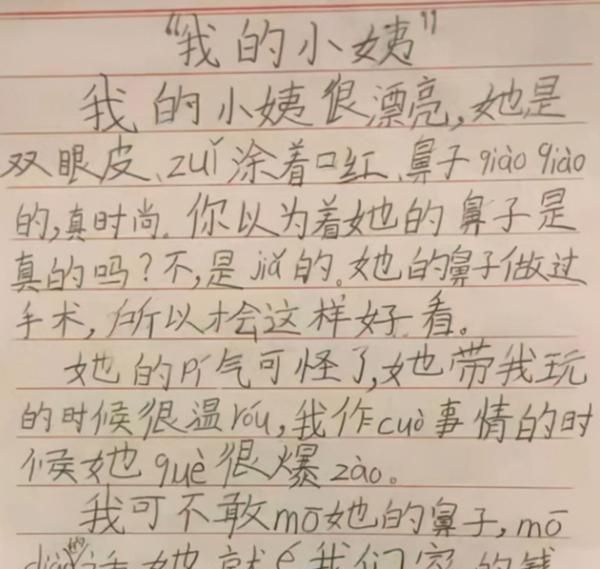 “我的小姨”
我的小姨很漂亮,她是
双眼皮、zuǐ涂着口红、鼻子qiào qiào
的,真时尚。你以为着她的鼻子是
真的吗?不,是jiǎ的。她的鼻子做过
手术,所以才会这样好看。
她的pí气可怪了,她带我玩
的时候很温róu,我作cuò事情的时
候她què很爆zào。
我可不敢mō她的鼻子,mō
的话她就 我们家的钱